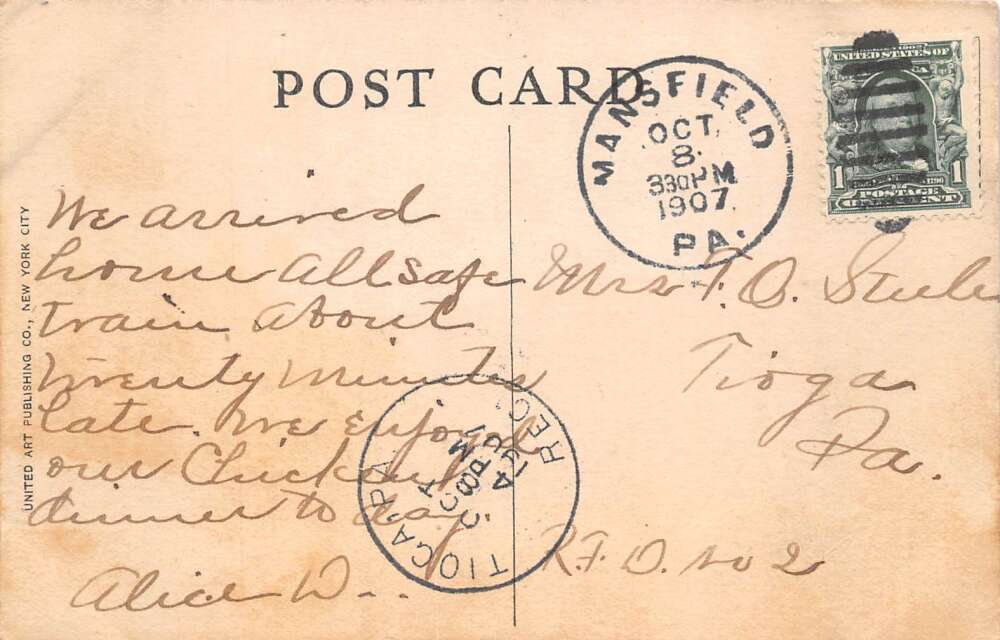 POST CARD
UNITED ART PUBLISHING CO., NEW YORK CITY
MANSFIELD
OCT.
8.
330PM
1907
PA.
UNITED STATES OF
1 1
POSTAGE
ONE CENT
We arrived
home all safe
train about
twenty minutes
late. We enjoyed
our Chicken
dinner to day.
Alice W..
Mrs. F. O. Steele
Tioga
Pa.
R.F.D. No 2
TIOGA PA.
OCT
8
REC'D